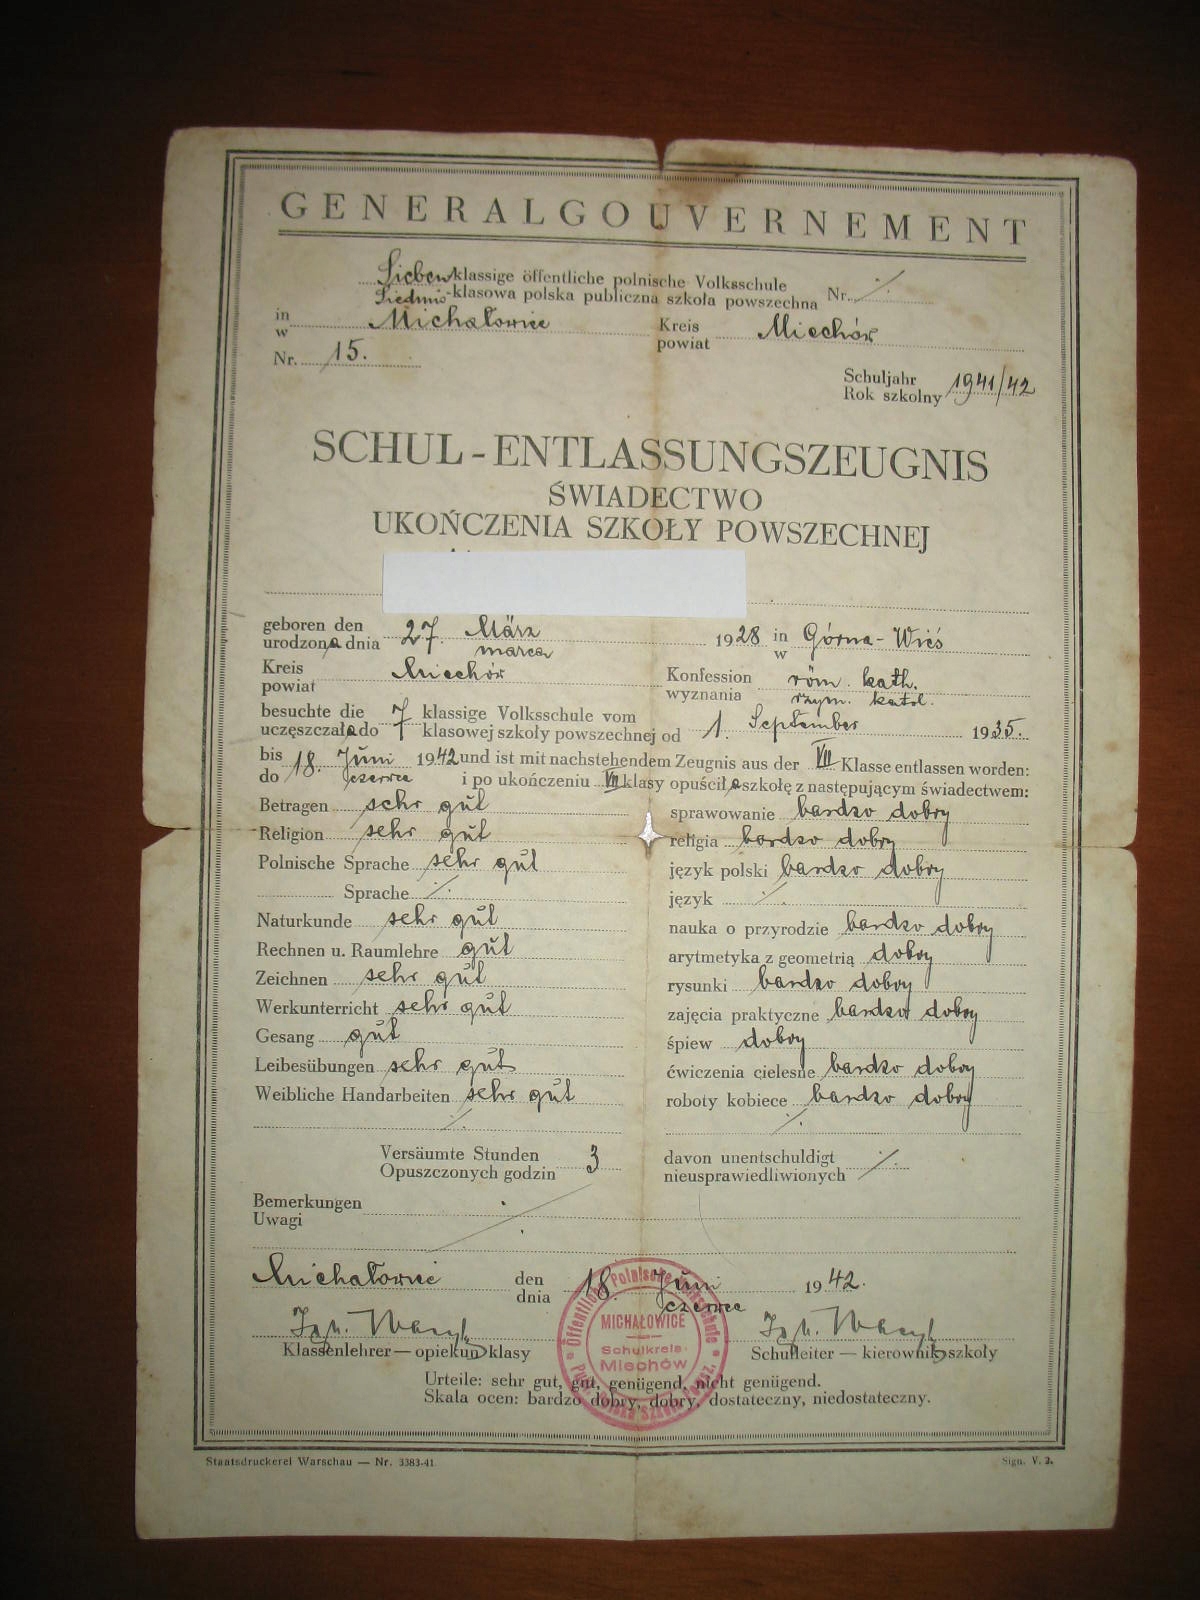 GENERALGOUVERNEMENT
Sieben-klassige öffentliche polnische Volksschule
Siedmio-klasowa polska publiczna szkoła powszechna Nr. ./.
in
w Michałowice Kreis
powiat Miechów
Nr. 15.
Schuljahr
Rok szkolny 1941/42
SCHUL-ENTLASSUNGSZEUGNIS
ŚWIADECTWO
UKOŃCZENIA SZKOŁY POWSZECHNEJ
geboren den 27. März 1928 in Górna-Wieś
urodzona dnia marca w
Kreis Miechów Konfession röm. kath.
powiat wyznania rzym. katol.
besuchte die 7 klassige Volksschule vom 1. September 1935.
uczęszczała do 7 klasowej szkoły powszechnej od
bis 18. Juni 1942 und ist mit nachstehendem Zeugnis aus der VII Klasse entlassen worden:
do czerwca i po ukończeniu VII klasy opuściła szkołę z następującym świadectwem:
Betragen sehr gut sprawowanie bardzo dobry
Religion sehr gut religia bardzo dobry
Polnische Sprache sehr gut język polski bardzo dobry
Sprache ./. język ./.
Naturkunde sehr gut nauka o przyrodzie bardzo dobry
Rechnen u. Raumlehre gut arytmetyka z geometrią dobry
Zeichnen sehr gut rysunki bardzo dobry
Werkunterricht sehr gut zajęcia praktyczne bardzo dobry
Gesang gut śpiew dobry
Leibesübungen sehr gut ćwiczenia cielesne bardzo dobry
Weibliche Handarbeiten sehr gut roboty kobiece bardzo dobry
./. ./.
Versäumte Stunden 3 davon unentschuldigt ./.
Opuszczonych godzin nieusprawiedliwionych
Bemerkungen
Uwagi
Michałowice den 18. Juni 1942.
dnia czerwca
Klassenlehrer — opiekun klasy Schulleiter — kierownik szkoły
Öffentliche Polnische Volksschule
MICHAŁOWICE
Schulkreis
Miechów
Urteile: sehr gut, gut, genügend, nicht genügend.
Skala ocen: bardzo dobry, dobry, dostateczny, niedostateczny.
Staatsdruckerei Warschau — Nr. 3383-41. Sign. V. 2.